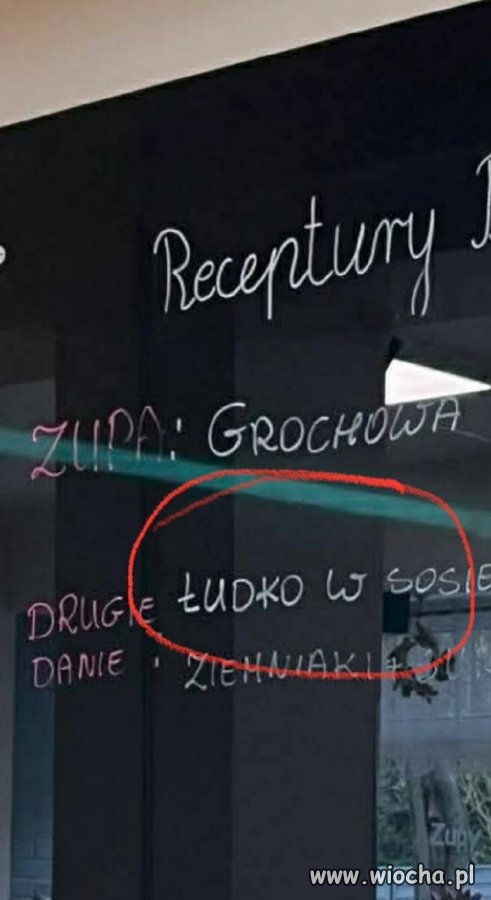 Receptury
ZUPA: GROCHOWA
DRUGIE ŁUDKO W SOSIE
DANIE: ZIEMNIAKI +
Zupy
www.wiocha.pl